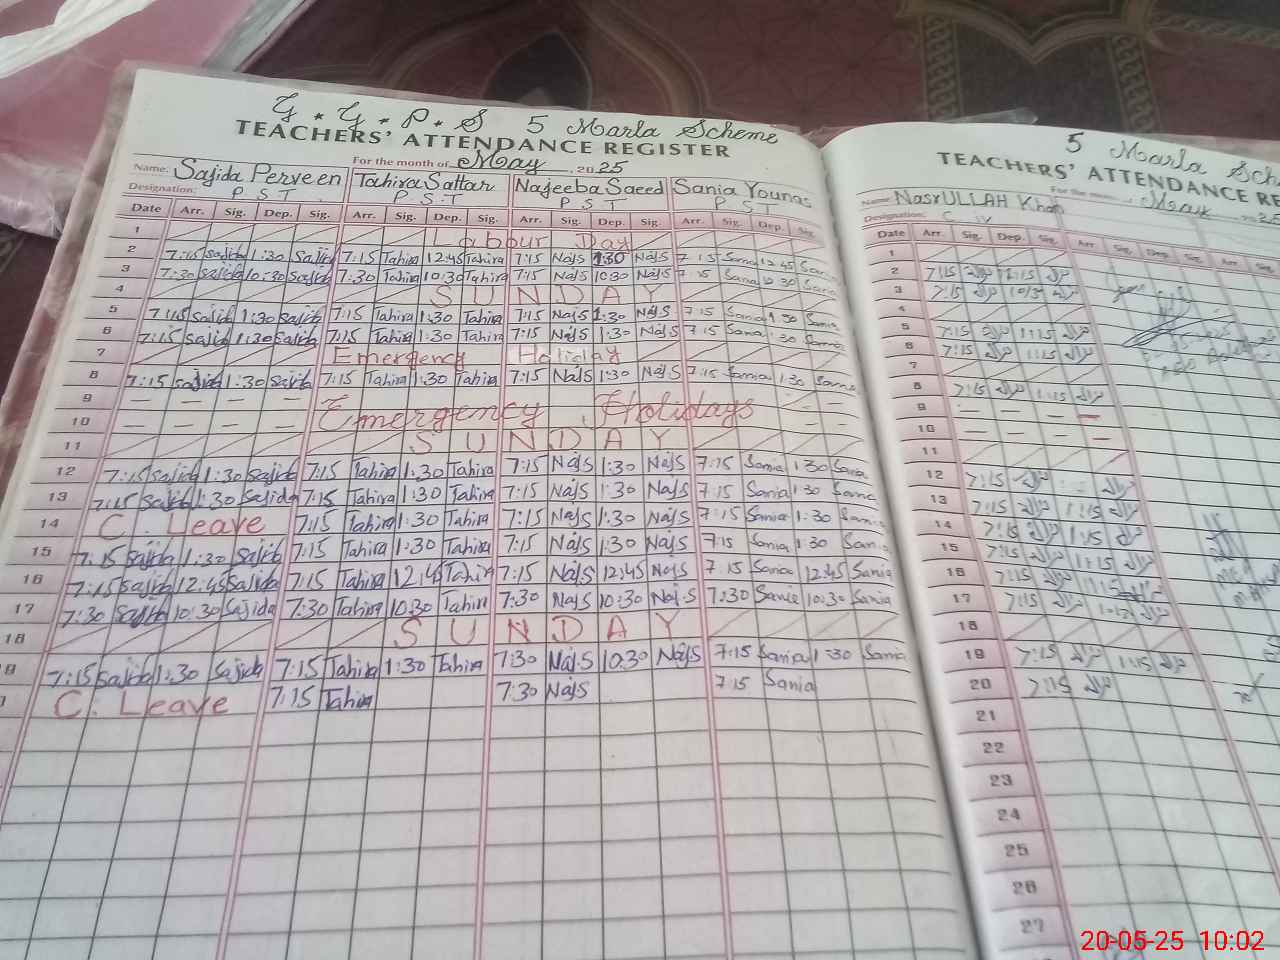 G.G.P.S 5 Marla Scheme
TEACHERS' ATTENDANCE REGISTER
For the month of May 2025
Name: Sajida Perveen Tahira Sattar Najeeba Saeed Sania Younas
Designation: P.S.T P.S.T P.S.T P.S.T
Date Arr. Sig. Dep. Sig. Arr. Sig. Dep. Sig. Arr. Sig. Dep. Sig. Arr. Sig. Dep. Sig.
1 Labour Day
2 7:15 Sajida 1:30 Sajida 7:15 Tahira 12:45 Tahira 7:15 NajS 1:30 NajS 7:15 Sania 12:45 Sania
3 7:30 Sajida 10:30 Sajida 7:30 Tahira 10:30 Tahira 7:15 NajS 10:30 NajS 7:15 Sania 10:30 Sania
4 SUNDAY
5 7:15 Sajida 1:30 Sajida 7:15 Tahira 1:30 Tahira 7:15 NajS 1:30 NajS 7:15 Sania 1:30 Sania
6 7:15 Sajida 1:30 Sajida 7:15 Tahira 1:30 Tahira 7:15 NajS 1:30 NajS 7:15 Sania 1:30 Sania
7 Emergency Holiday
8 7:15 Sajida 1:30 Sajida 7:15 Tahira 1:30 Tahira 7:15 NajS 1:30 NajS 7:15 Sania 1:30 Sania
9 — — — —
Emergency Holidays
10 — — — —
11 SUNDAY
12 7:15 Sajida 1:30 Sajida 7:15 Tahira 1:30 Tahira 7:15 NajS 1:30 NajS 7:15 Sania 1:30 Sania
13 7:15 Sajida 1:30 Sajida 7:15 Tahira 1:30 Tahira 7:15 NajS 1:30 NajS 7:15 Sania 1:30 Sania
14 C. Leave 7:15 Tahira 1:30 Tahira 7:15 NajS 1:30 NajS 7:15 Sania 1:30 Sania
15 7:15 Sajida 1:30 Sajida 7:15 Tahira 1:30 Tahira 7:15 NajS 1:30 NajS 7:15 Sania 1:30 Sania
16 7:15 Sajida 12:45 Sajida 7:15 Tahira 12:45 Tahira 7:15 NajS 12:45 NajS 7:15 Sania 12:45 Sania
17 7:30 Sajida 10:30 Sajida 7:30 Tahira 10:30 Tahira 7:30 NajS 10:30 NajS 7:30 Sania 10:30 Sania
18 SUNDAY
9 7:15 Sajida 1:30 Sajida 7:15 Tahira 1:30 Tahira 7:30 NajS 10:30 NajS 7:15 Sania 1:30 Sania
C. Leave 7:15 Tahira 7:30 NajS 7:15 Sania
5 Marla Sch
TEACHERS' ATTENDANCE RE
For the month May 2025
Name: NasrULLAH Khan
Designation: C IV
Date Arr. Sig. Dep. Sig. Arr. Sig. Dep. Sig. Arr. Sig.
1
2 7:15 11:15
3 7:15
4
5 7:15 11:15
6 7:15 11:15
7
8 7:15 11:15
9 — — — —
10 — — — —
11
12 7:15
13 7:15 1:15
14 7:15 1:15
15 7:15 11:15
16 7:15 11:15
17 7:15
18
19 7:15 11:15
20 7:15
21
22
23
24
25
26
27
20-05-25 10:02